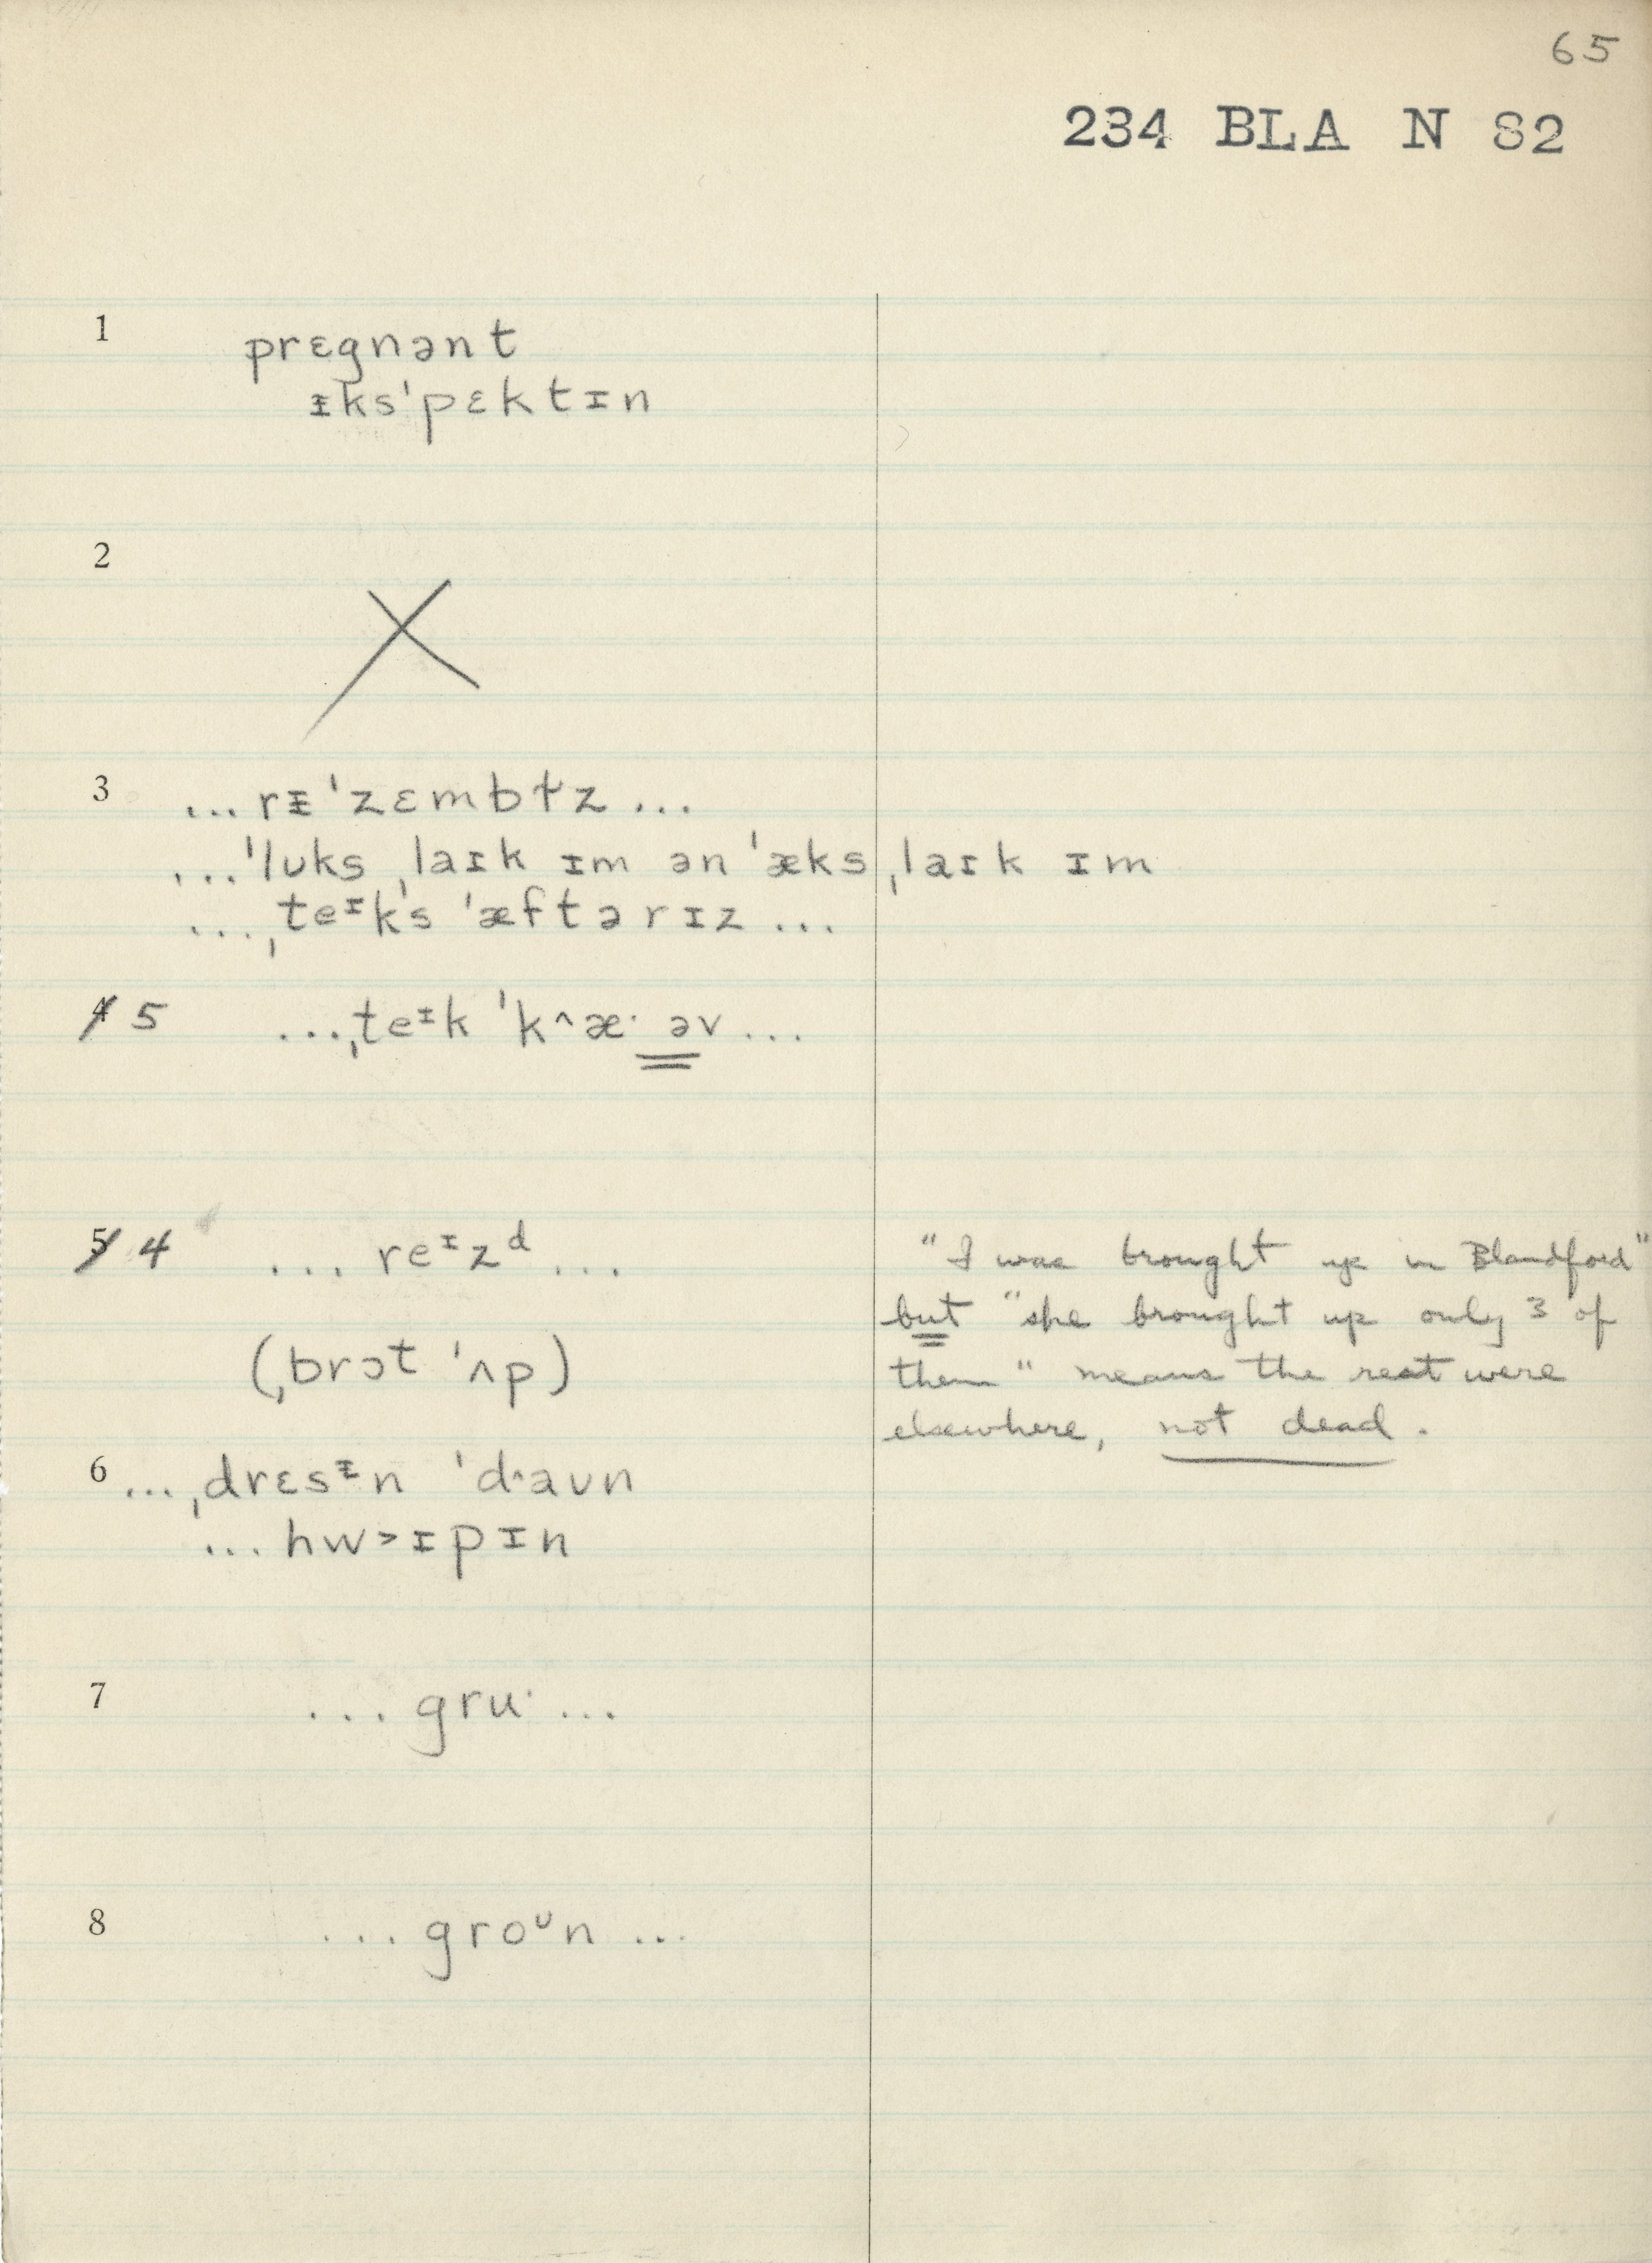 65
234 BLA N 82
1 prɛgnənt
ᵻks'pɛktɪn
2 X
3 ...rᵻ'zɛmbɫz...
...'lʊks ˌlaɪk ɪm ən 'æks ˌlaɪk ɪm
...ˌteᶦks 'æftərɪz...
4 5 ...ˌteᶦk 'k^æ· əv...
5 4 ...reᶦzᵈ...
"I was brought up in Blandford"
but "she brought up only 3 of
(ˌbrɔt 'ʌp)
them" means the rest were
elsewhere, not dead.
6 ...ˌdrɛsᵻn 'd˄aʊn
...hw>ɪpɪn
7 ...gru·...
8 ...groᶷn...